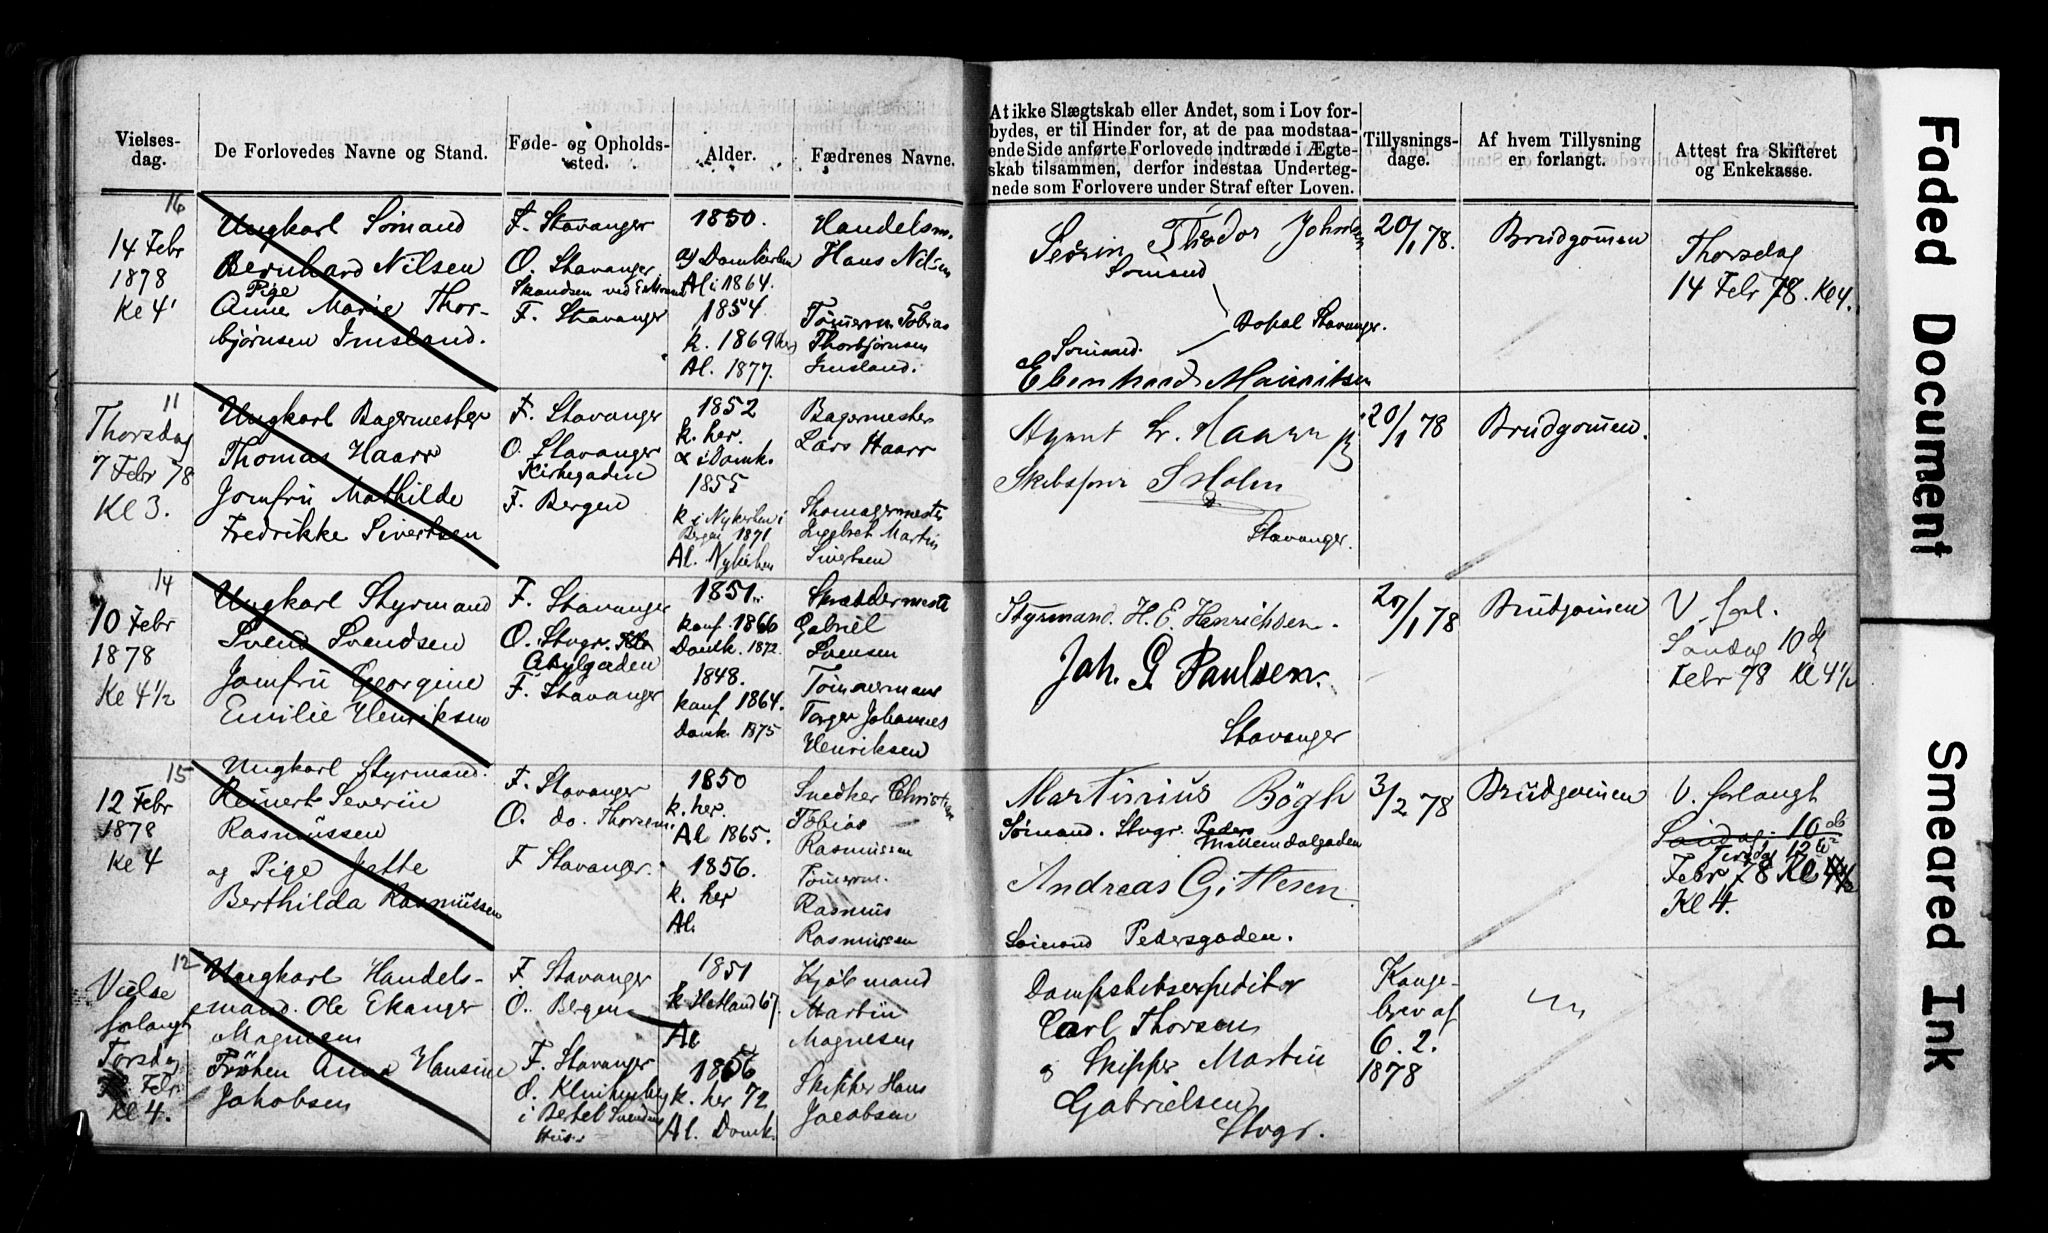 Vielses-
dag.
De Forlovedes Navne og Stand.
Føde- og Opholds-
sted.
Alder.
Fædrenes Navne.
At ikke Slægtskab eller Andet, som i Lov for-
bydes, er til Hinder for, at de paa modstaa-
ende Side anførte Forlovede indtræde i Ægte-
skab tilsammen, derfor indestaa Underteg-
nede som Forlovere under Straf efter Loven.
Tillysnings-
dage.
Af hvem Tillysning
er forlangt.
Attest fra Skifteret
og Enkekasse.
16
14 Febr
1878
Kl 4
Ungkarl Sømand
Bernhard Nilsen
Pige
Anne Marie Thor-
bjørnsen Imsland.
F. Stavanger
O. Stavanger
Skandsen ved
F. Stavanger
1850.
Domkirken
Al i 1864.
1854.
k. 1869 her
Al. 1877.
Handelsm.
Hans Nilsen
Tømmerm Tobias
Thorbjørnsen
Imsland.
Severin Theodor Johnsen
Sømand
Bopæl Stavanger.
Sømand.
Ebenhard Mauritsen
20/1 78.
Brudgommen
Thorsdag
14 Febr 78. Kl 4.
11
Thorsdag
7 Febr 78
Kl 3.
Ungkarl Bagermester
Thomas Haarr
Jomfru Mathilde
Fredrikke Sivertsen
F. Stavanger
O. Stavanger
Kirkegaden
F. Bergen
1852
k. her.
i Domk.
1855
k i Nykirken i
Bergen 1871
Al. Nykirken
Bagermester
Lars Haarr
Martin
Sivertsen
Agent L. Haarr
S Holm
Stavanger.
20/1 78
Brudgommen.
14
10 Febr
1878
Kl 4 1/2
Ungkarl Styrmand
Svend Svendsen
Jomfru Georgine
Emilie Henriksen
F. Stavanger
O. Stvgr.
Asylgaden
F. Stavanger
1851.
konf. 1866
Domk. 1872.
1848.
konf 1864.
Domk. 1875
Skræddermester
Gabriel
Svensen
Tømmermand
Torger Johannes
Henriksen
Styrmand. H. E. Henrichsen.
Joh. G. Paulsen.
Stavanger
27/1 78
Brudgommen
V. forl.
Søndag 10de
Febr 78 Kl 4 1/2
15
12 Febr
1878
Kl 4
Ungkarl Styrmand.
Reinert Severin
Rasmussen
og Pige Jette
Berthilda Rasmussen
F. Stavanger
O. do.
F Stavanger.
1850
k. her.
Al 1865.
1856.
k. her
Al.
Snedker Christian
Tobias
Rasmussen
Tømerm.
Rasmus
Rasmussen
Martinius Bögh
Sømand. Stvgr. Peder
Andreas Gittesen
Sømand Pedersgaden.
3/2 78
Brudgommen
V. forlangt
Søndag 10de
Tirsdag 12te
Febr 78 Kl 4 1/2
Kl 4.
12
Vielse
forlangt
Torsdag
Febr
Kl 4.
Ungkarl Handels-
mand. Ole Ekanger
Magnesen
Frøken Anna Hansine
Jakobsen
F Stavanger
O. Bergen
F. Stavanger
O. Klinkenberg
i Svendsens
Hus.
1851
k Hetland 67
Al
1856
k. her 72
Al. Domk.
Kjøbmand
Martin
Magnesen
Skipper Hans
Jacobsen
Dampskibsexpeditør
Carl Thorsen
og Skipper Martin
Gabrielsen
Stvgr.
Konge-
brev af
6. 2.
1878
Faded Document
Smeared Ink